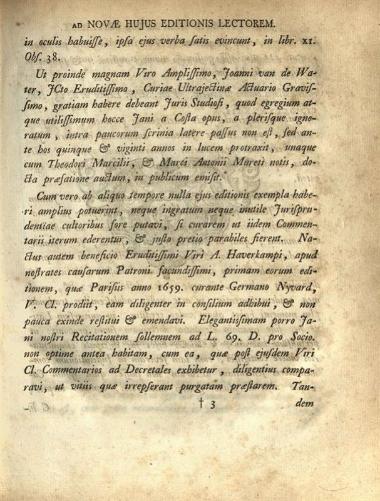 AD NOVÆ HUJUS EDITIONIS LECTOREM.
in oculis habuisse, ipsa ejus verba satis evincunt, in libr. XI.
Obs. 38.
Ut proinde magnam Viro Amplissimo, Joanni van de Wa-
ter, JCto Eruditissimo, Curiae Ultrajectinæ Actuario Gravis-
simo, gratiam habere debeant Juris Studiosi, quod egregium at-
que utilissimum hocce Jani a Costa opus, a plerisque igno-
ratum, intra paucorum scrinia latere passus non est, sed an-
te hos quinque & viginti annos in lucem protraxit, unaque
cum Theodori Marcilii, & Marci Antonii Moreti notis, do-
cta præfatione auctum, in publicum emisit.
Cum vero ab aliquo tempore nulla ejus editionis exempla habe-
ri amplius potuerint, neque ingratum neque inutile Jurispru-
dentiae cultoribus fore putavi, si curarem ut iidem Commen-
tarii iterum ederentur, & justo pretio parabiles fierent. Na-
ctus autem beneficio Eruditissimi Viri A. Haverkampi, apud
nostrates causarum Patroni facundissimi, primam eorum edi-
tionem, quæ Parisiis anno 1659. curante Germano Nyvard,
V. Cl. prodiit, eam diligenter in consilium adhibui, & non
pauca exinde restitui & emendavi. Elegantissimam porro Ja-
ni nostri Recitationem sollemnem ad L. 69. D. pro Socio.
non optime antea habitam, cum ea, quæ post ejusdem Viri
Cl. Commentarios ad Decretales exhibetur, diligentius compa-
ravi, ut vitiis quæ irrepserant purgatam præstarem. Tan-
† 3 dem